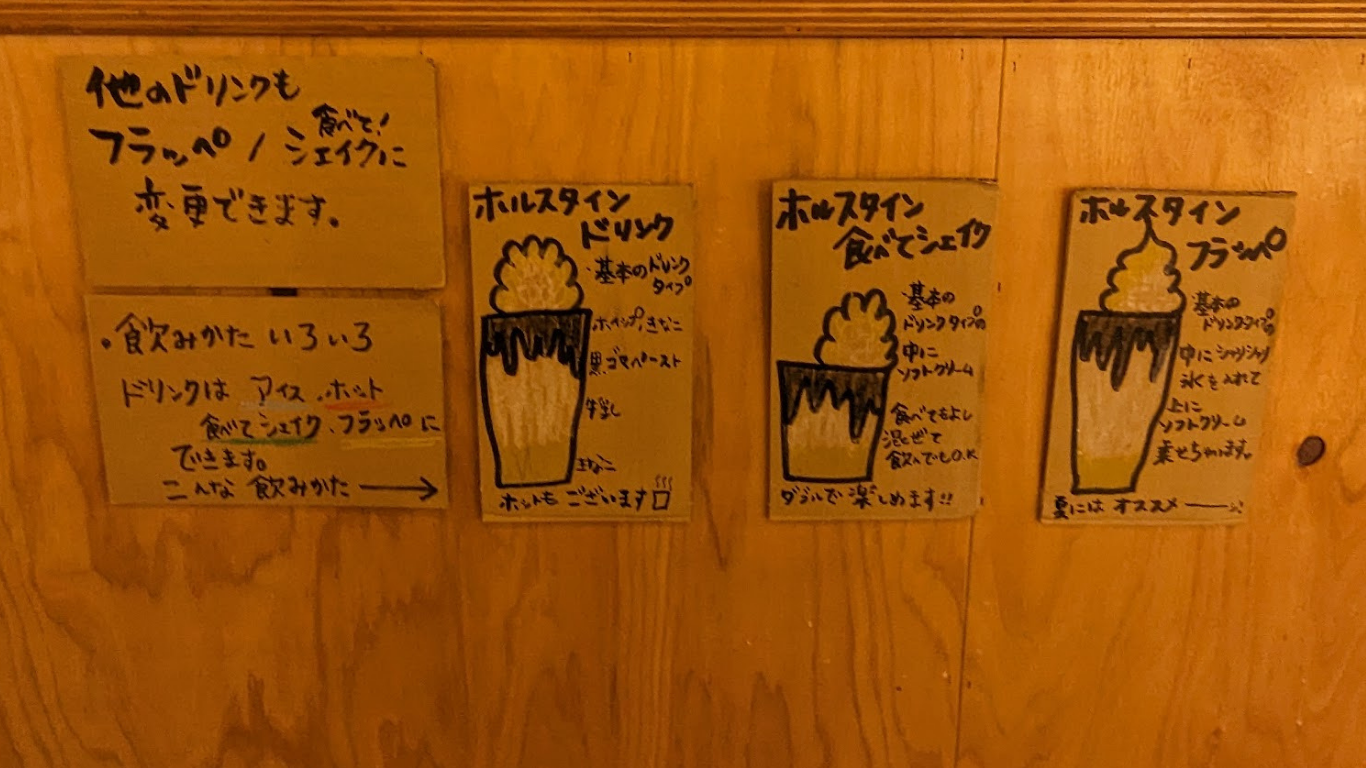 他のドリンクも
食べて!
フラッペ / シェイクに
変更できます。
・食飲みかた いろいろ
ドリンクは アイス、ホット
食べてシェイク、フラッペに
できます。
こんな 飲みかた →
ホルスタイン
ドリンク
・基本のドリンク
タイプ
ホイップ,きなこ
黒ゴマペースト
牛乳
きなこ
ホットも ございます
ホルスタイン
食べてシェイク
基本の
ドリンクタイプの
中に
ソフトクリーム
食べてもよし
混ぜて
飲んでもO.K
ダブルで 楽しめます!!
ホルスタイン
フラッペ
基本の
ドリンクタイプの
中にシャリシャリ
氷を入れて
上に
ソフトクリーム
乗せちゃいます。
夏には オススメ